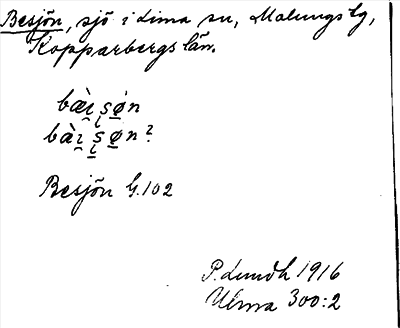 Besjön, sjö i Lima sn, Malungs tg,
Kopparbergs län.
bæ̀i̯ṣø̣n
bài̯ṣø̣n?
Besjön G. 102
P. Lundh 1916
Ulma 300:2